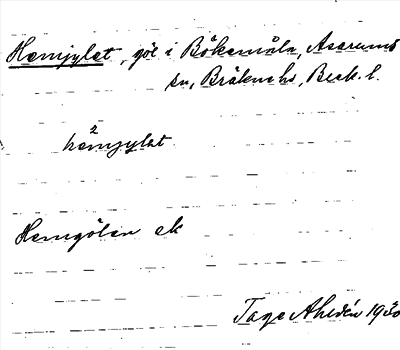 Hemjylet, göl i Bökemåla, Asarums
sn, Bräknehs, Blek. l.
hêm²jylət
Hemgölen ek
Tage Ahldén 1930